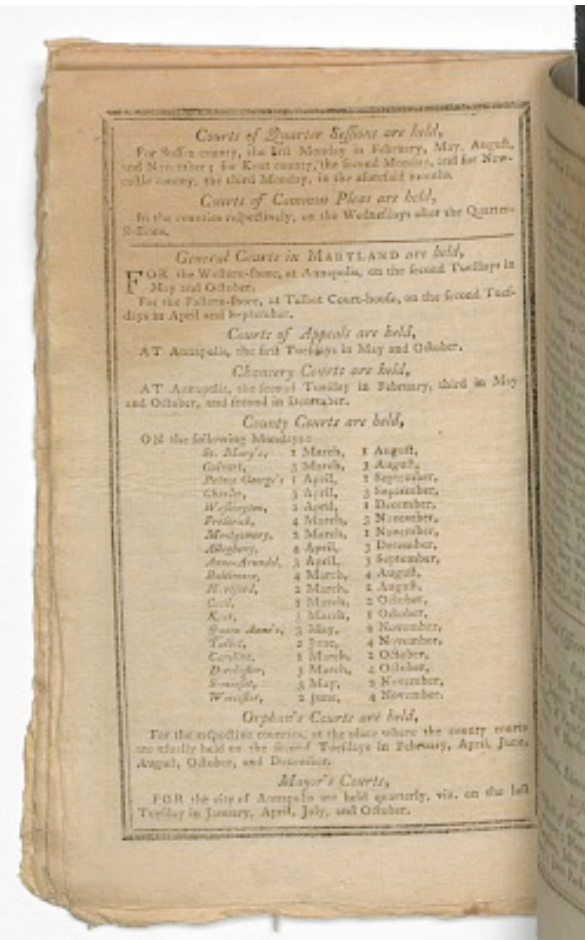 Courts of Quarter Sessions are held,
For Sussex county, the first Monday in February, May, August,
and November; for Kent county, the second Monday, and for New-
castle county, the third Monday, in the aforesaid months.
Courts of Common Pleas are held,
In the counties respectively, on the Wednesdays after the Quarter-
Sessions.
General Courts in MARYLAND are held,
FOR the Western-shore, at Annapolis, on the second Tuesdays in
May and October.
For the Eastern-shore, at Talbot Court-house, on the second Tues-
days in April and September.
Courts of Appeals are held,
AT Annapolis, the first Tuesdays in May and October.
Chancery Courts are held,
AT Annapolis, the second Tuesday in February, third in May
and October, and second in December.
County Courts are held,
ON the following Mondays:
St. Mary's, 1 March, 1 August,
Calvert, 3 March, 3 August,
Prince George's 1 April, September,
Charles, 3 April, 3 September,
Washington, April, 1 December,
Frederick, 4 March, 3 November,
Montgomery, 2 March, 1 November,
Allegheny, 4 April, 3 December,
Anne-Arundel, 3 April, 3 September,
Baltimore, 4 March, 4 August,
Hartford, 2 March, August,
Cecil, March, 2 October,
Kent, March, 1 October,
Queen Anne's, May, November,
Talbot, 2 June, 4 November,
Caroline, 1 March, 2 October,
Dorchester, 3 March, 4 October,
Somerset, 3 May, 2 November,
Worcester, 2 June, 4 November.
Orphan's Courts are held,
For the respective counties, at the place where the county courts
are usually held on the second Tuesdays in February, April, June,
August, October, and December.
Mayor's Courts,
FOR the city of Annapolis are held quarterly, viz. on the last
Tuesday in January, April, July, and October.